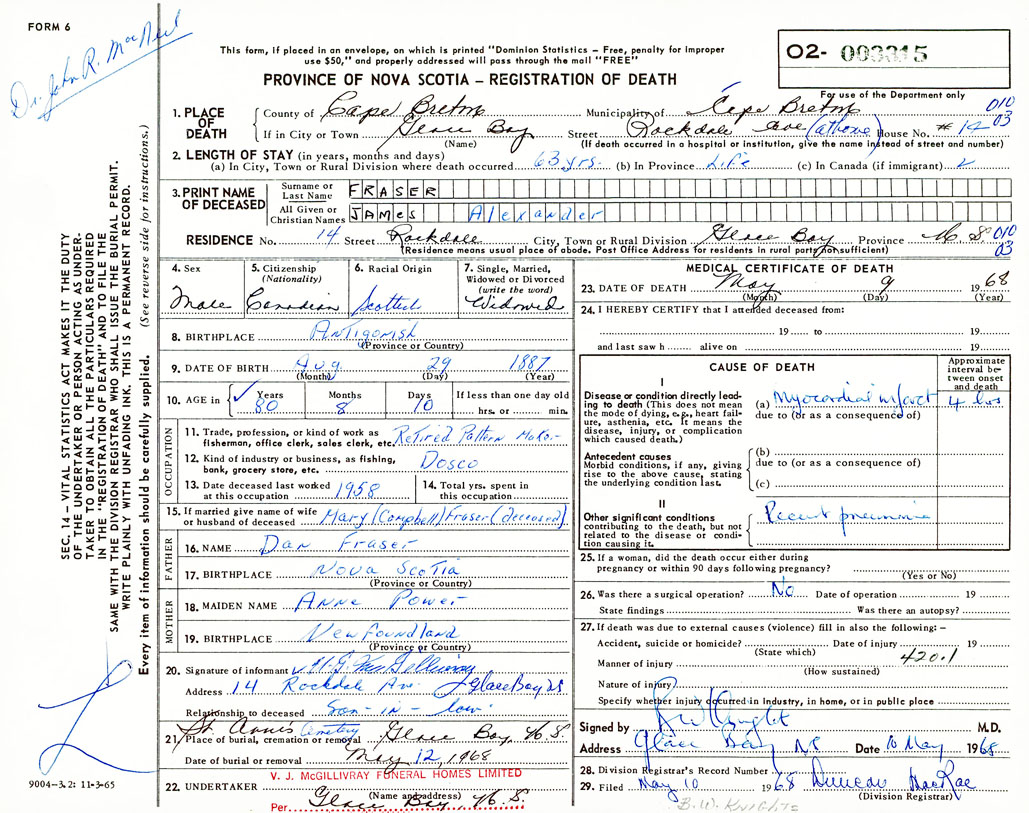 FORM 6
Dr. John R. MacNeil
This form, if placed in an envelope, on which is printed "Dominion Statistics – Free, penalty for improper
use $50," and properly addressed will pass through the mail "FREE"
PROVINCE OF NOVA SCOTIA – REGISTRATION OF DEATH
02- 003315
For use of the Department only
010
03
1. PLACE OF DEATH
County of Cape Breton Municipality of Cape Breton
If in City or Town Glace Bay Street Rockdale Ave (at home) House No. #14
(Name) (If death occurred in a hospital or institution, give the name instead of street and number)
2. LENGTH OF STAY (in years, months and days)
(a) In City, Town or Rural Division where death occurred 63 yrs. (b) In Province Life (c) In Canada (if immigrant)
3. PRINT NAME OF DECEASED
Surname or Last Name FRASER
All Given or Christian Names JAMES Alexander
RESIDENCE No. 14 Street Rockdale City, Town or Rural Division Glace Bay Province N.S. 010
03
(Residence means usual place of abode. Post Office Address for residents in rural parts not sufficient)
4. Sex
Male
5. Citizenship
(Nationality)
Canadian
6. Racial Origin
Scottish
7. Single, Married,
Widowed or Divorced
(write the word)
Widowed
8. BIRTHPLACE Antigonish
(Province or Country)
9. DATE OF BIRTH Aug. 29 1887
(Month) (Day) (Year)
10. AGE in
Years Months Days If less than one day old
80 8 10 hrs. or min.
OCCUPATION
11. Trade, profession, or kind of work as
fisherman, office clerk, sales clerk, etc. Retired Pattern Maker
12. Kind of industry or business, as fishing,
bank, grocery store, etc. Dosco
13. Date deceased last worked
at this occupation 1958
14. Total yrs. spent in
this occupation
15. If married give name of wife
or husband of deceased Mary (Campbell) Fraser (deceased)
FATHER
16. NAME Dan Fraser
17. BIRTHPLACE Nova Scotia
(Province or Country)
MOTHER
18. MAIDEN NAME Anne Power
19. BIRTHPLACE Newfoundland
(Province or Country)
20. Signature of informant
Address 14 Rockdale Ave. Glace Bay NS
Relationship to deceased Son-in-law
St. Anne's Cemetery
21. Place of burial, cremation or removal Glace Bay, N.S.
Date of burial or removal May 12, 1968
V. J. McGILLIVRAY FUNERAL HOMES LIMITED
22. UNDERTAKER (Name and address)
Per Glace Bay, N.S
MEDICAL CERTIFICATE OF DEATH
23. DATE OF DEATH May 9 1968
(Month) (Day) (Year)
24. I HEREBY CERTIFY that I attended deceased from:
19 to 19
and last saw h alive on 19
CAUSE OF DEATH
Approximate
interval be-
tween onset
and death
I
Disease or condition directly lead-
ing to death (This does not mean
the mode of dying, e.g., heart fail-
ure, asthenia, etc. It means the
disease, injury, or complication
which caused death.)
(a) Myocardial infarct 4 hrs
due to (or as a consequence of)
Antecedent causes
Morbid conditions, if any, giving
rise to the above cause, stating
the underlying condition last.
(b)
due to (or as a consequence of)
(c)
II
Other significant conditions
contributing to the death, but not
related to the disease or condi-
tion causing it.
Recent pneumonia
25. If a woman, did the death occur either during
pregnancy or within 90 days following pregnancy?
(Yes or No)
26. Was there a surgical operation? No Date of operation 19
State findings Was there an autopsy?
27. If death was due to external causes (violence) fill in also the following: –
Accident, suicide or homicide? Date of injury 19
(State which)
420.1
Manner of injury
(How sustained)
Nature of injury
Specify whether injury occurred in industry, in home, or in public place
Signed by B W Knight M.D.
Address Glace Bay NS Date 10 May 1968
28. Division Registrar's Record Number
29. Filed May 10 1968 Duncan MacRae
(Division Registrar)
B. W. KNIGHT
SEC. 14 – VITAL STATISTICS ACT MAKES IT THE DUTY
OF THE UNDERTAKER OR PERSON ACTING AS UNDER-
TAKER TO OBTAIN ALL THE PARTICULARS REQUIRED
IN THE "REGISTRATION OF DEATH" AND TO FILE THE
SAME WITH THE DIVISION REGISTRAR WHO SHALL ISSUE THE BURIAL PERMIT.
WRITE PLAINLY WITH UNFADING INK. THIS IS A PERMANENT RECORD.
Every item of information should be carefully supplied. (See reverse side for instructions.)
9004–3.2: 11-3-65